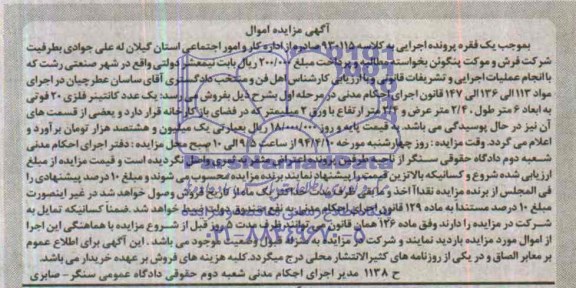 آگهی مزایده اموال
بموجب یک فقره پرونده اجرایی به کلاسه ۹۳۰۱۱۵ صادره از اداره کار و امور اجتماعی استان گیلان له علی جوادی بطرفیت
شرکت فرش و موکت پنگوئن بخواسته مطالبه و پرداخت مبلغ ۲۰۰/۰۰۰ ریال بابت نیمعشر دولتی واقع در شهر صنعتی رشت که
با انجام عملیات اجرایی و تشریفات قانونی و ارزیابی کارشناس اهل فن و منتخب دادگستری آقای ساسان عطرچیان در اجرای
مواد ۱۱۳ الی ۱۳۶ الی ۱۴۷ قانون اجرای احکام مدنی در مرحله اول بشرح ذیل بفروش می رسد: یک عدد کانتینر فلزی ۲۰ فوتی
به ابعاد ۶ متر طول، ۲/۴ متر عرض و ۲/۴ متر ارتفاع با ورق ۲ میلیمتر که در فضای باز کارخانه قرار دارد و بعضی از قسمت های
آن نیز در حال پوسیدگی می باشد. به قیمت پایه و روز ۱۸/۰۰۰/۰۰۰ ریال بعبارتی یک میلیون و هشتصد هزار تومان برآورد و
اعلام می گردد. وقت مزایده: روز چهارشنبه مورخه ۹۴/۴/۱۰ از ساعت ۹/۵ الی ۱۰ صبح محل مزایده: دفتر اجرای احکام مدنی
شعبه دوم دادگاه حقوقی سنگر از ناحیه طرفین پرونده اعتراض و واصل نگردیده است و قیمت مزایده از مبلغ
ارزیابی شده شروع و کسانیکه بالاترین قیمت را پیشنهاد نمایند برنده مزایده محسوب می شوند و مبلغ ۱۰ درصد پیشنهادی را
فی المجلس از برنده مزایده نقدا اخذ و مابقی ظرف مدت حداکثر یک ماه از تاریخ فروش وصول خواهد شد در غیر اینصورت
مبلغ ۱۰ درصد مستندا به ماده ۱۲۹ قانون اجرای احکام مدنی به نفع صندوق دولت ضبط خواهد شد. ضمنا کسانیکه تمایل به
شرکت در مزایده را دارند وفق ماده ۱۲۶ همان قانون می توانند ظرف مدت ۵ روز قبل از شروع مزایده با هماهنگی این اجرا
از اموال مورد مزایده بازدید نمایند و شرکت در مزایده به صرفه قبول وضعیت موجود می باشد. این آگهی برای اطلاع عموم
بر معابر الصاق و در یکی از روزنامه های کثیرالانتشار محلی درج میگردد. کلیه هزینه های فروش بر عهده خریدار می باشد.
ح ۱۱۳۸ مدیر اجرای احکام مدنی شعبه دوم حقوقی دادگاه عمومی سنگر - صابری